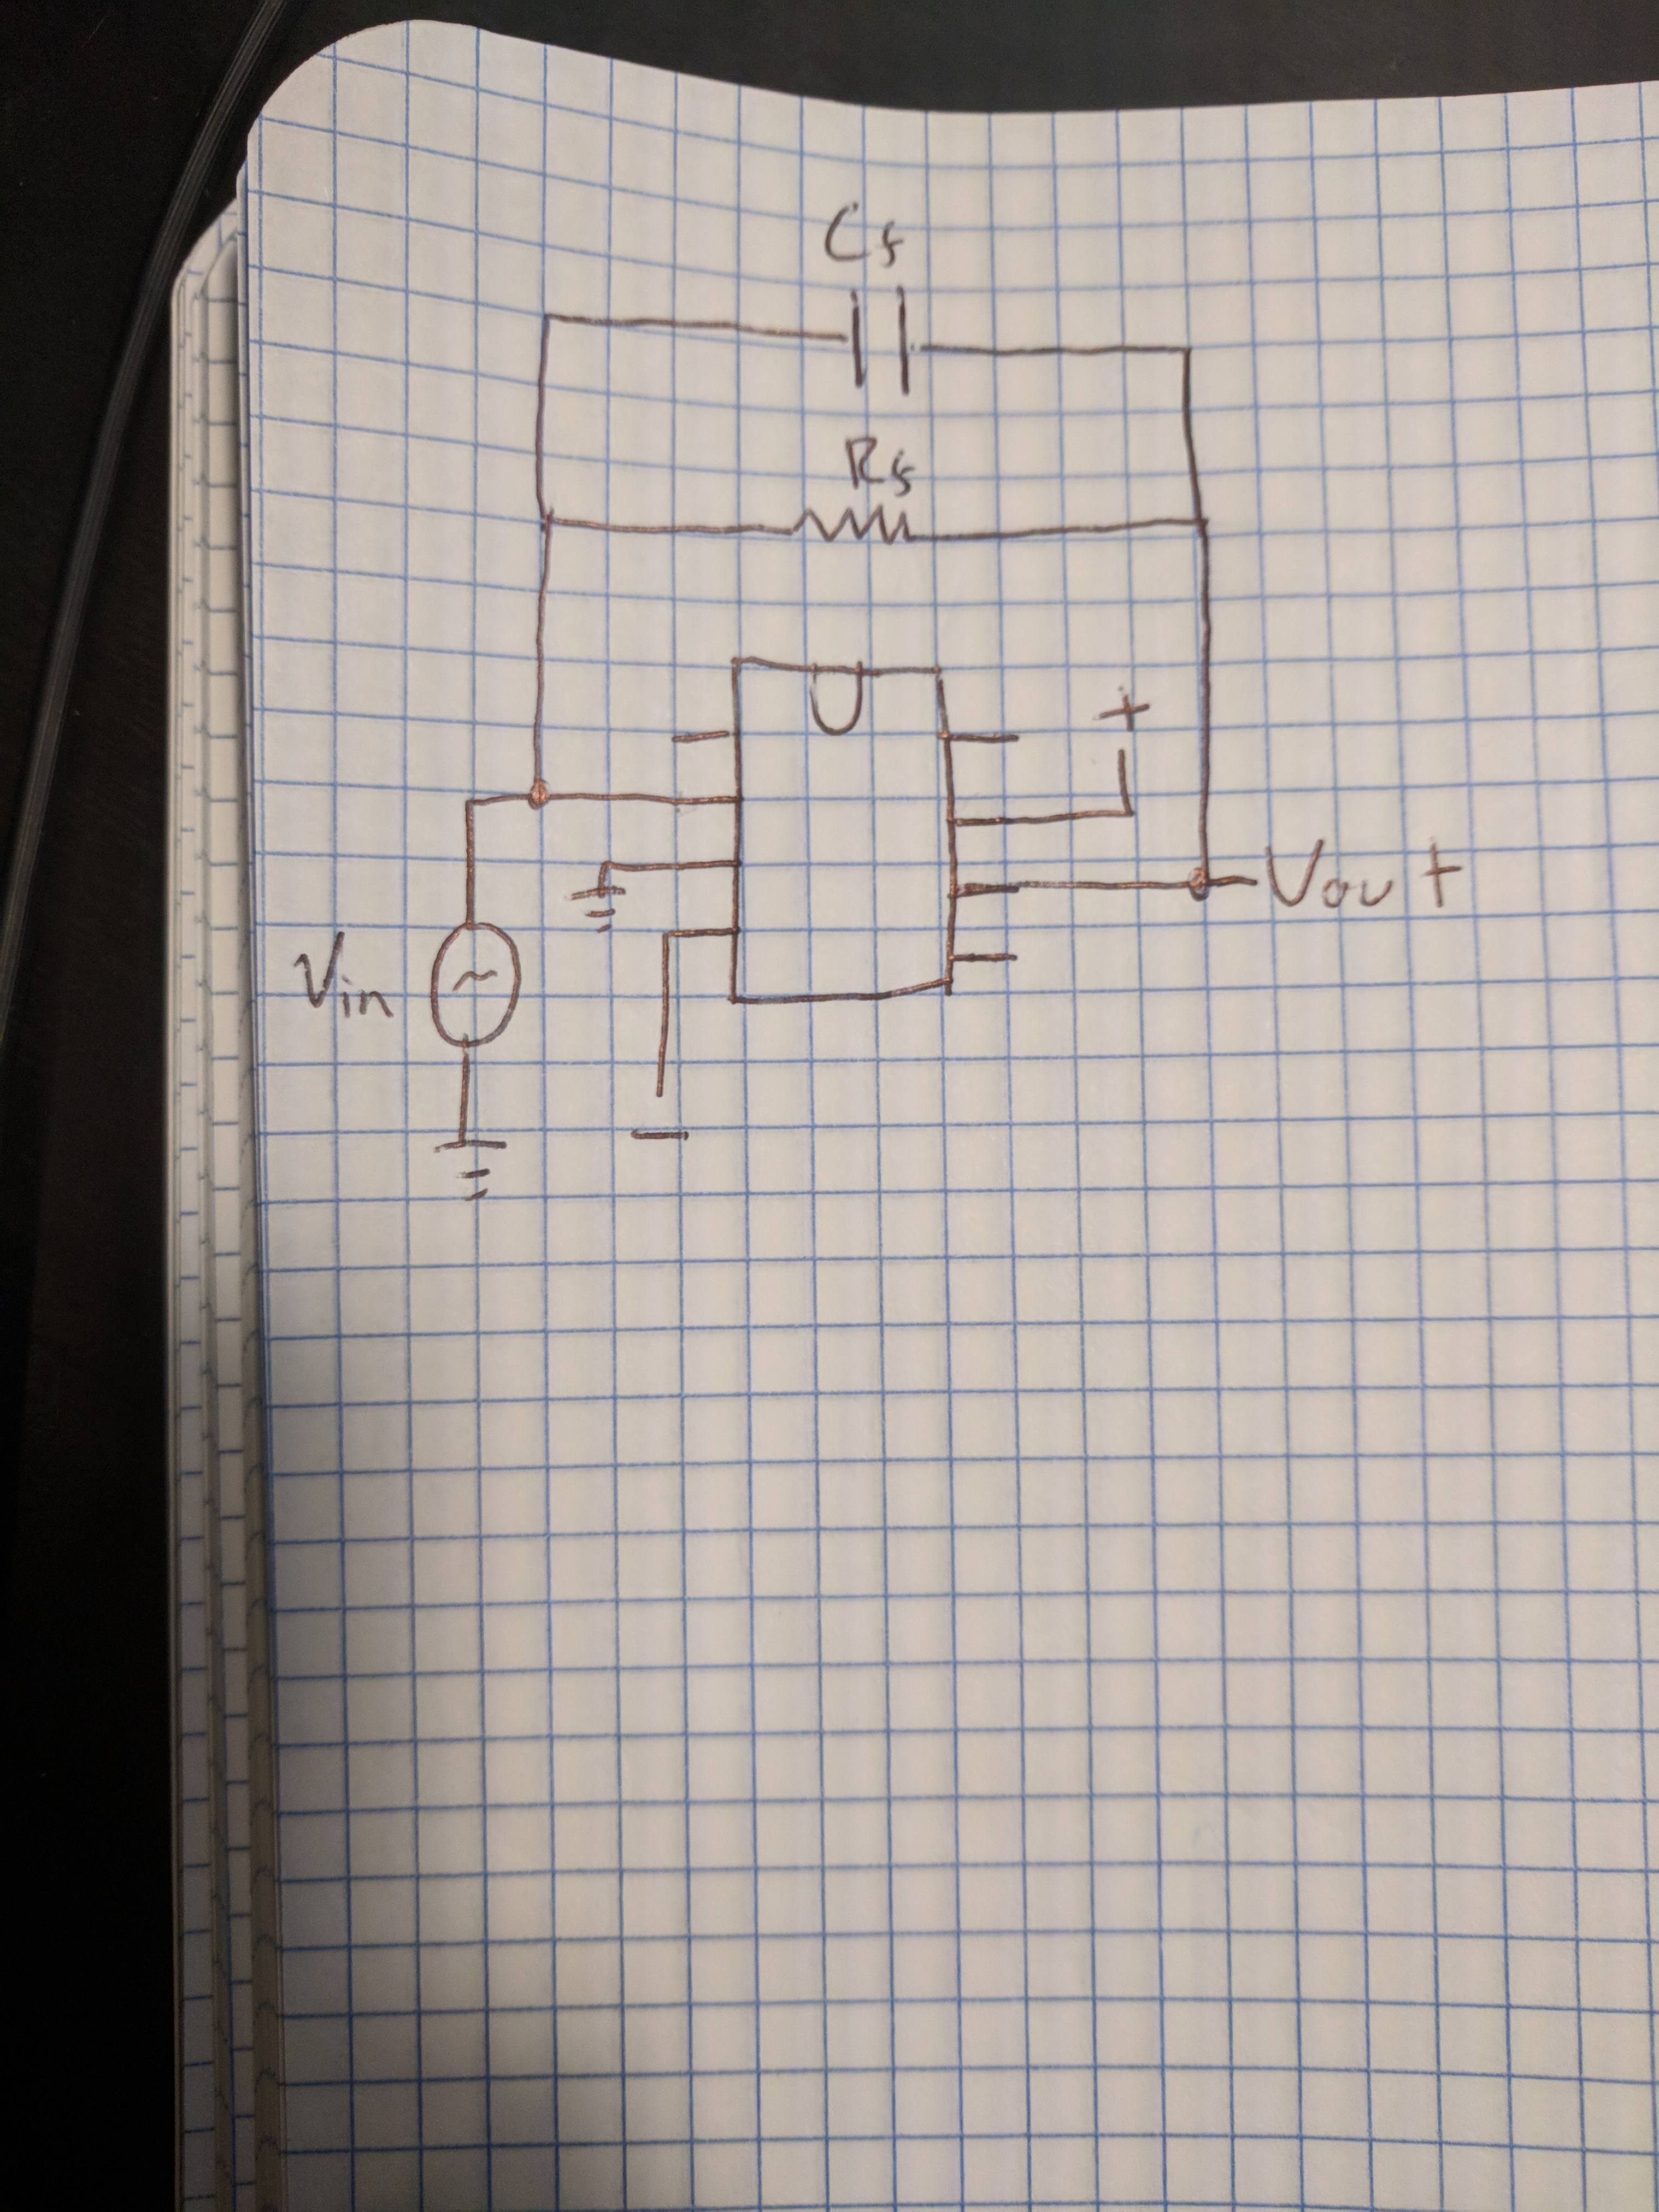 Cf
Rf
+
Vout
Vin
−